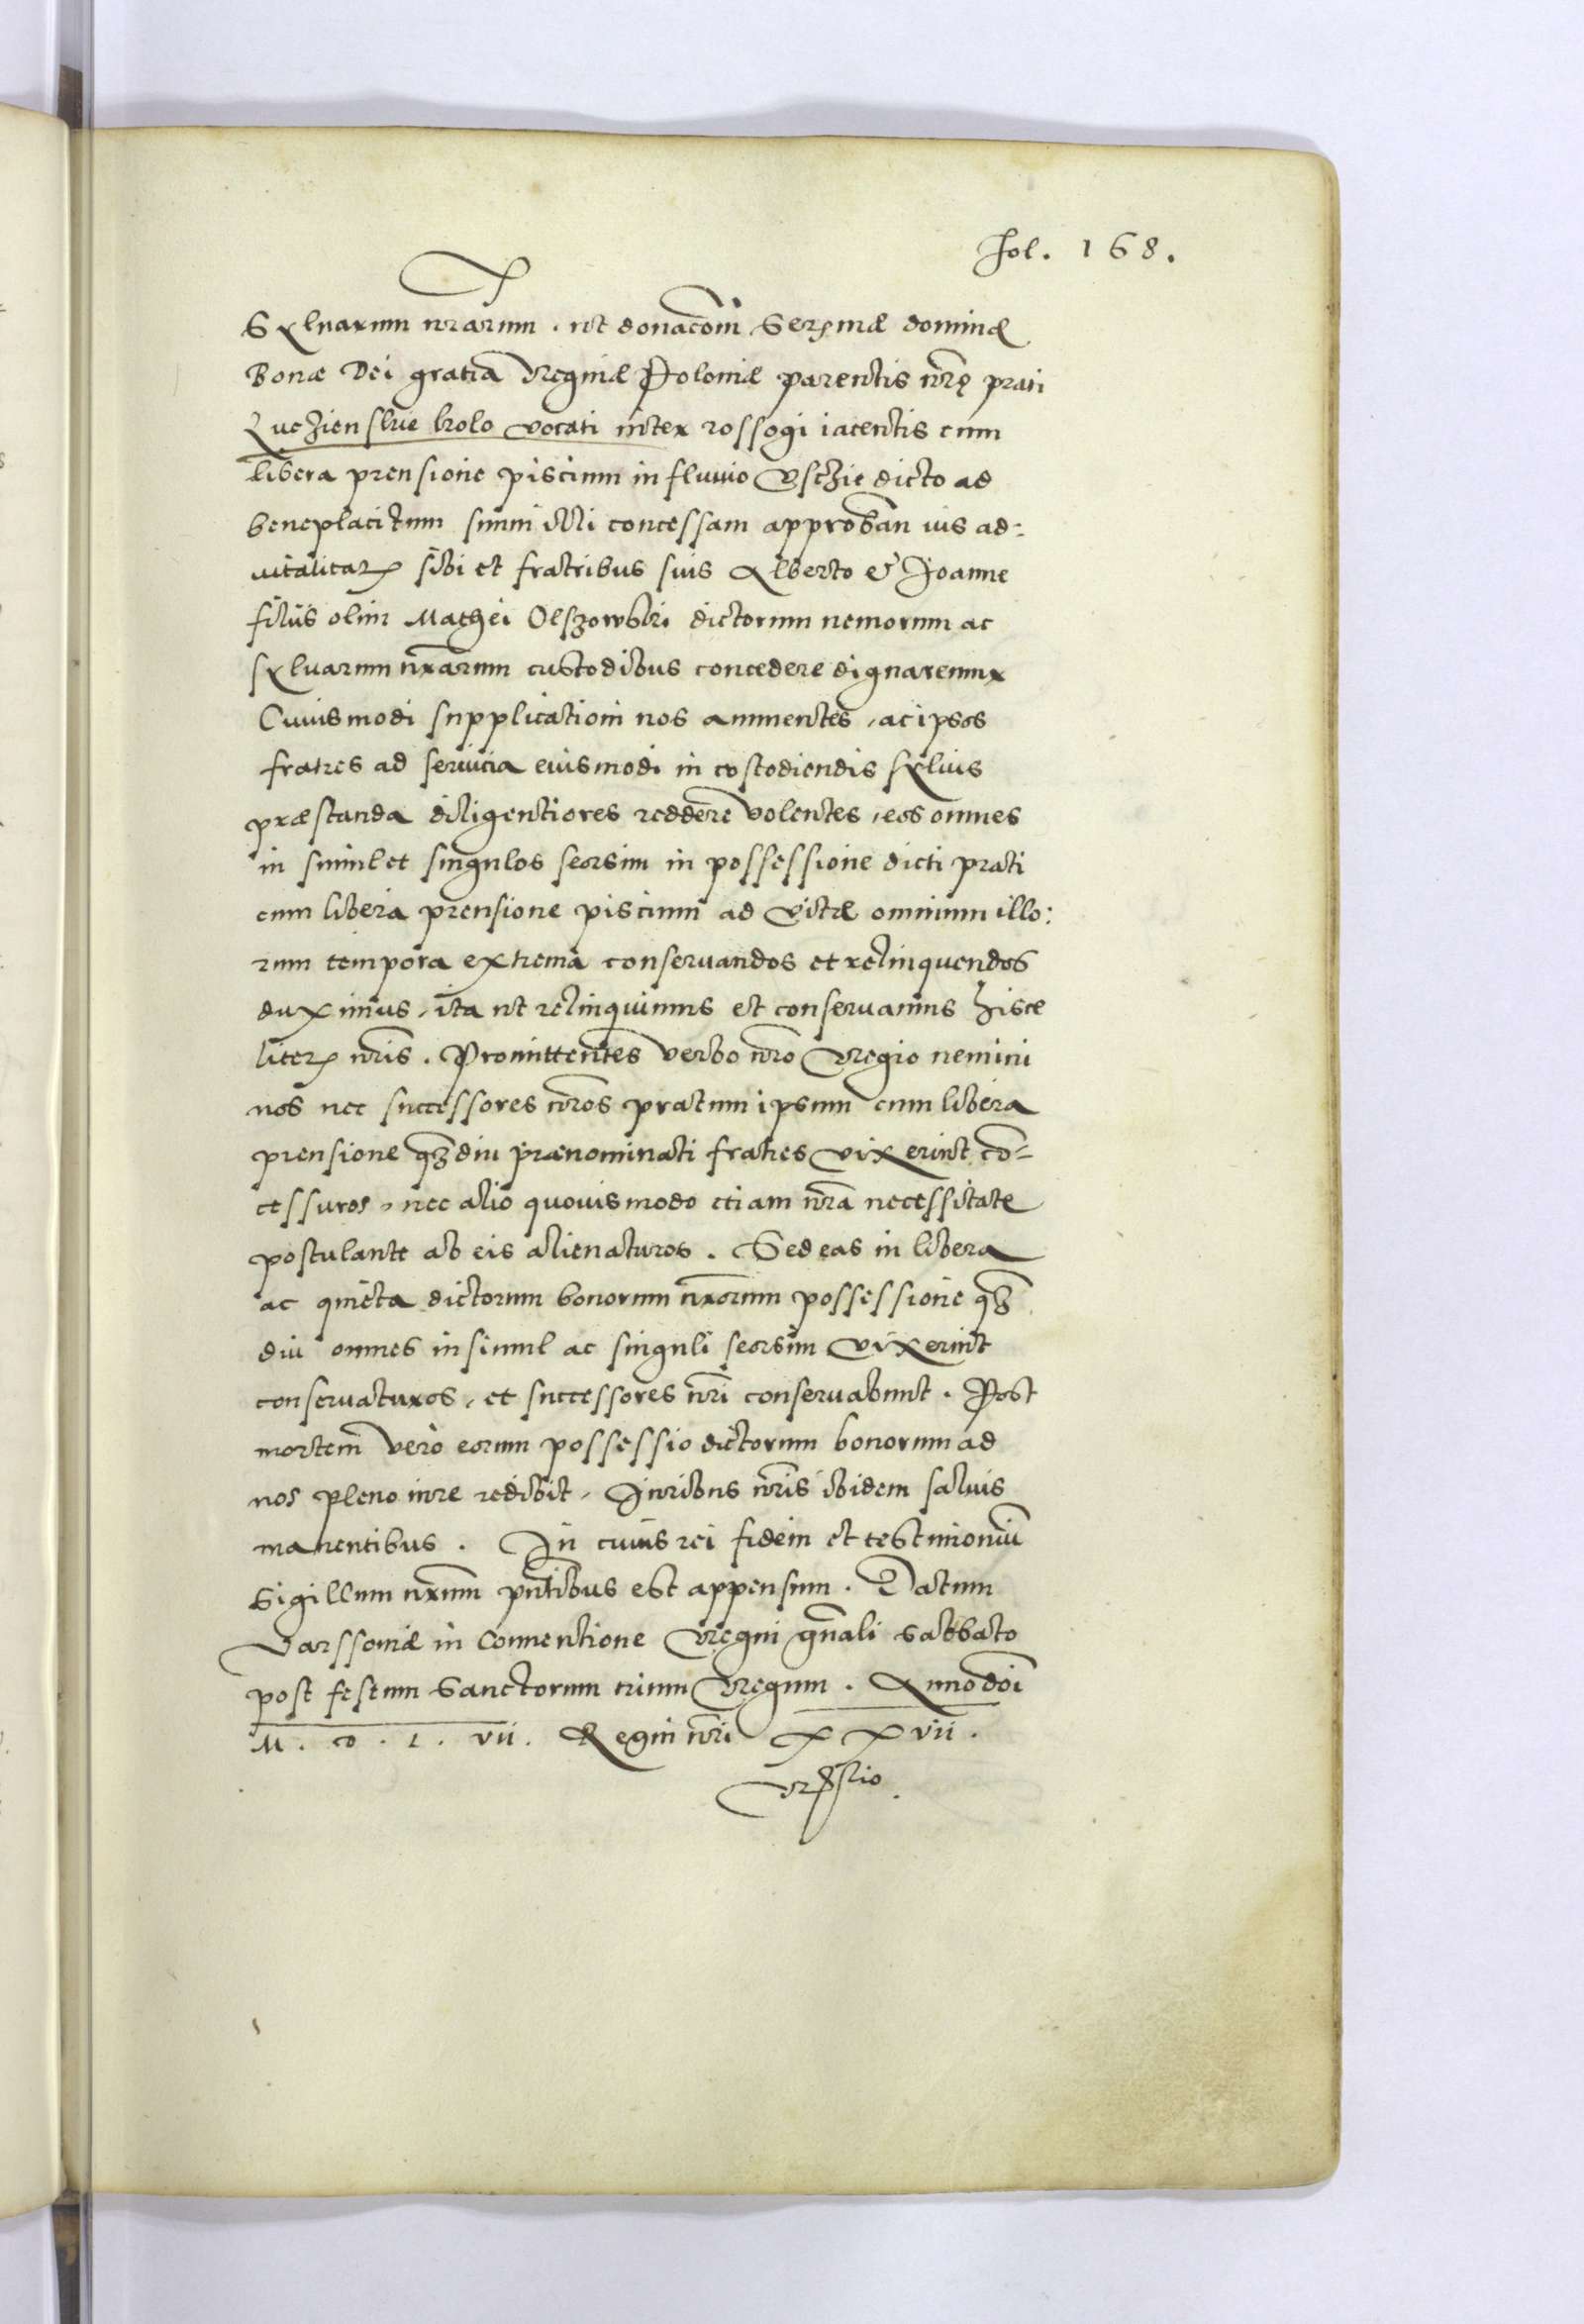 Fol. 168.
Sylvarum nrarum. ut donacoem Serssmæ dominæ
Bonæ Dei gratia Reginæ Poloniæ parentis nrę prati
Luczienskie kolo vocati inter rossogi iacentis cum
libera prensione piscium in fluvio Uschie dicto ad
beneplacitum suum illi concessam approban ius ad:
vitalitat sibi et fratribus suis Alberto & Joanne
filiis olim Mathei Olszowski dictorum nemorum ac
sylvarum nrarum custodibus concedere dignaremur
Cuiusmodi supplicationi nos annuentes, ac ipsos
fratres ad servicia eiusmodi in costodiendis sylvis
præstanda diligentiores reddere volentes, eos omnes
in simul et singulos seorsim in possessione dicti prati
cum libera prensione piscium ad vitæ omnium illo:
rum tempora extrema conservandos et relinquendos
duximus, ita ut relinquimus et conservamus hisce
liter nris. Promittentes verbo nro Regio nemini
nos nec successores nros pratum ipsum cum libera
prensione qzdiu prænominati fratres vixerint co=
cessuros, nec alio quovismodo etiam nra necessitate
postulante ab eis alienaturos. Sed eas in libera
ac quieta dictorum bonorum nrorum possessione qz
diu omnes insimul ac singuli seorsim vixerint
conservaturos, et successores nri conservabunt. Post
mortem vero eorum possessio dictorum bonorum ad
nos pleno iure redibit, Juribus nris ibidem salvis
manentibus. In cuius rei fidem et testimoniu
Sigillum nrum pntibus est appensum. Datum
Varssoviæ in Conventione Regni gnali Sabbato
post festum Sanctorum trium Regum. Anno doi
M. D. L. vii. Regni nri XXvii.